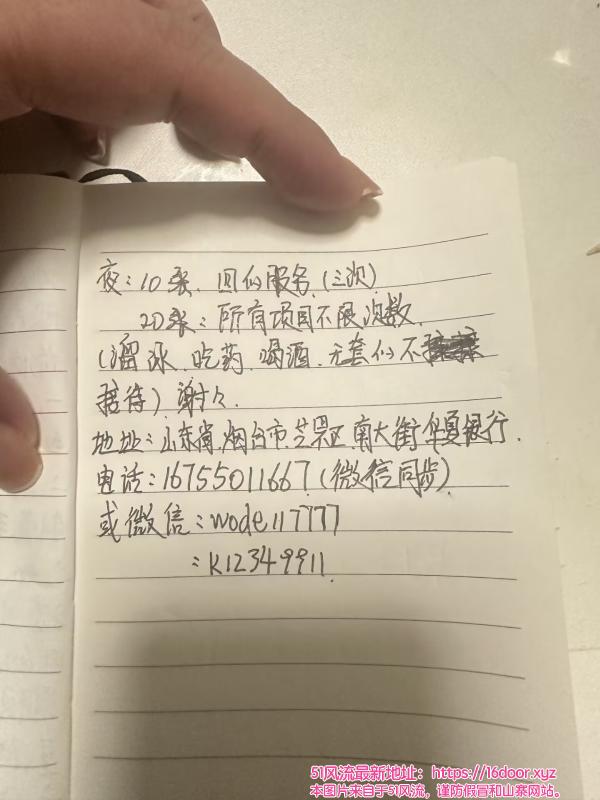 夜：10张．回们服务．(三次)
20张：所有项目不限次数．
(溜冰．吃药．喝酒．无套们不
接待)谢々．
地址：山东省．烟台市．芝罘区．南大街华夏银行．
电话：16755011667(微信同步)
或微信：wode117777
：K12349911．
51风流最新地址：https://16door.xyz
本图片来自于51风流，谨防假冒和山寨网站。